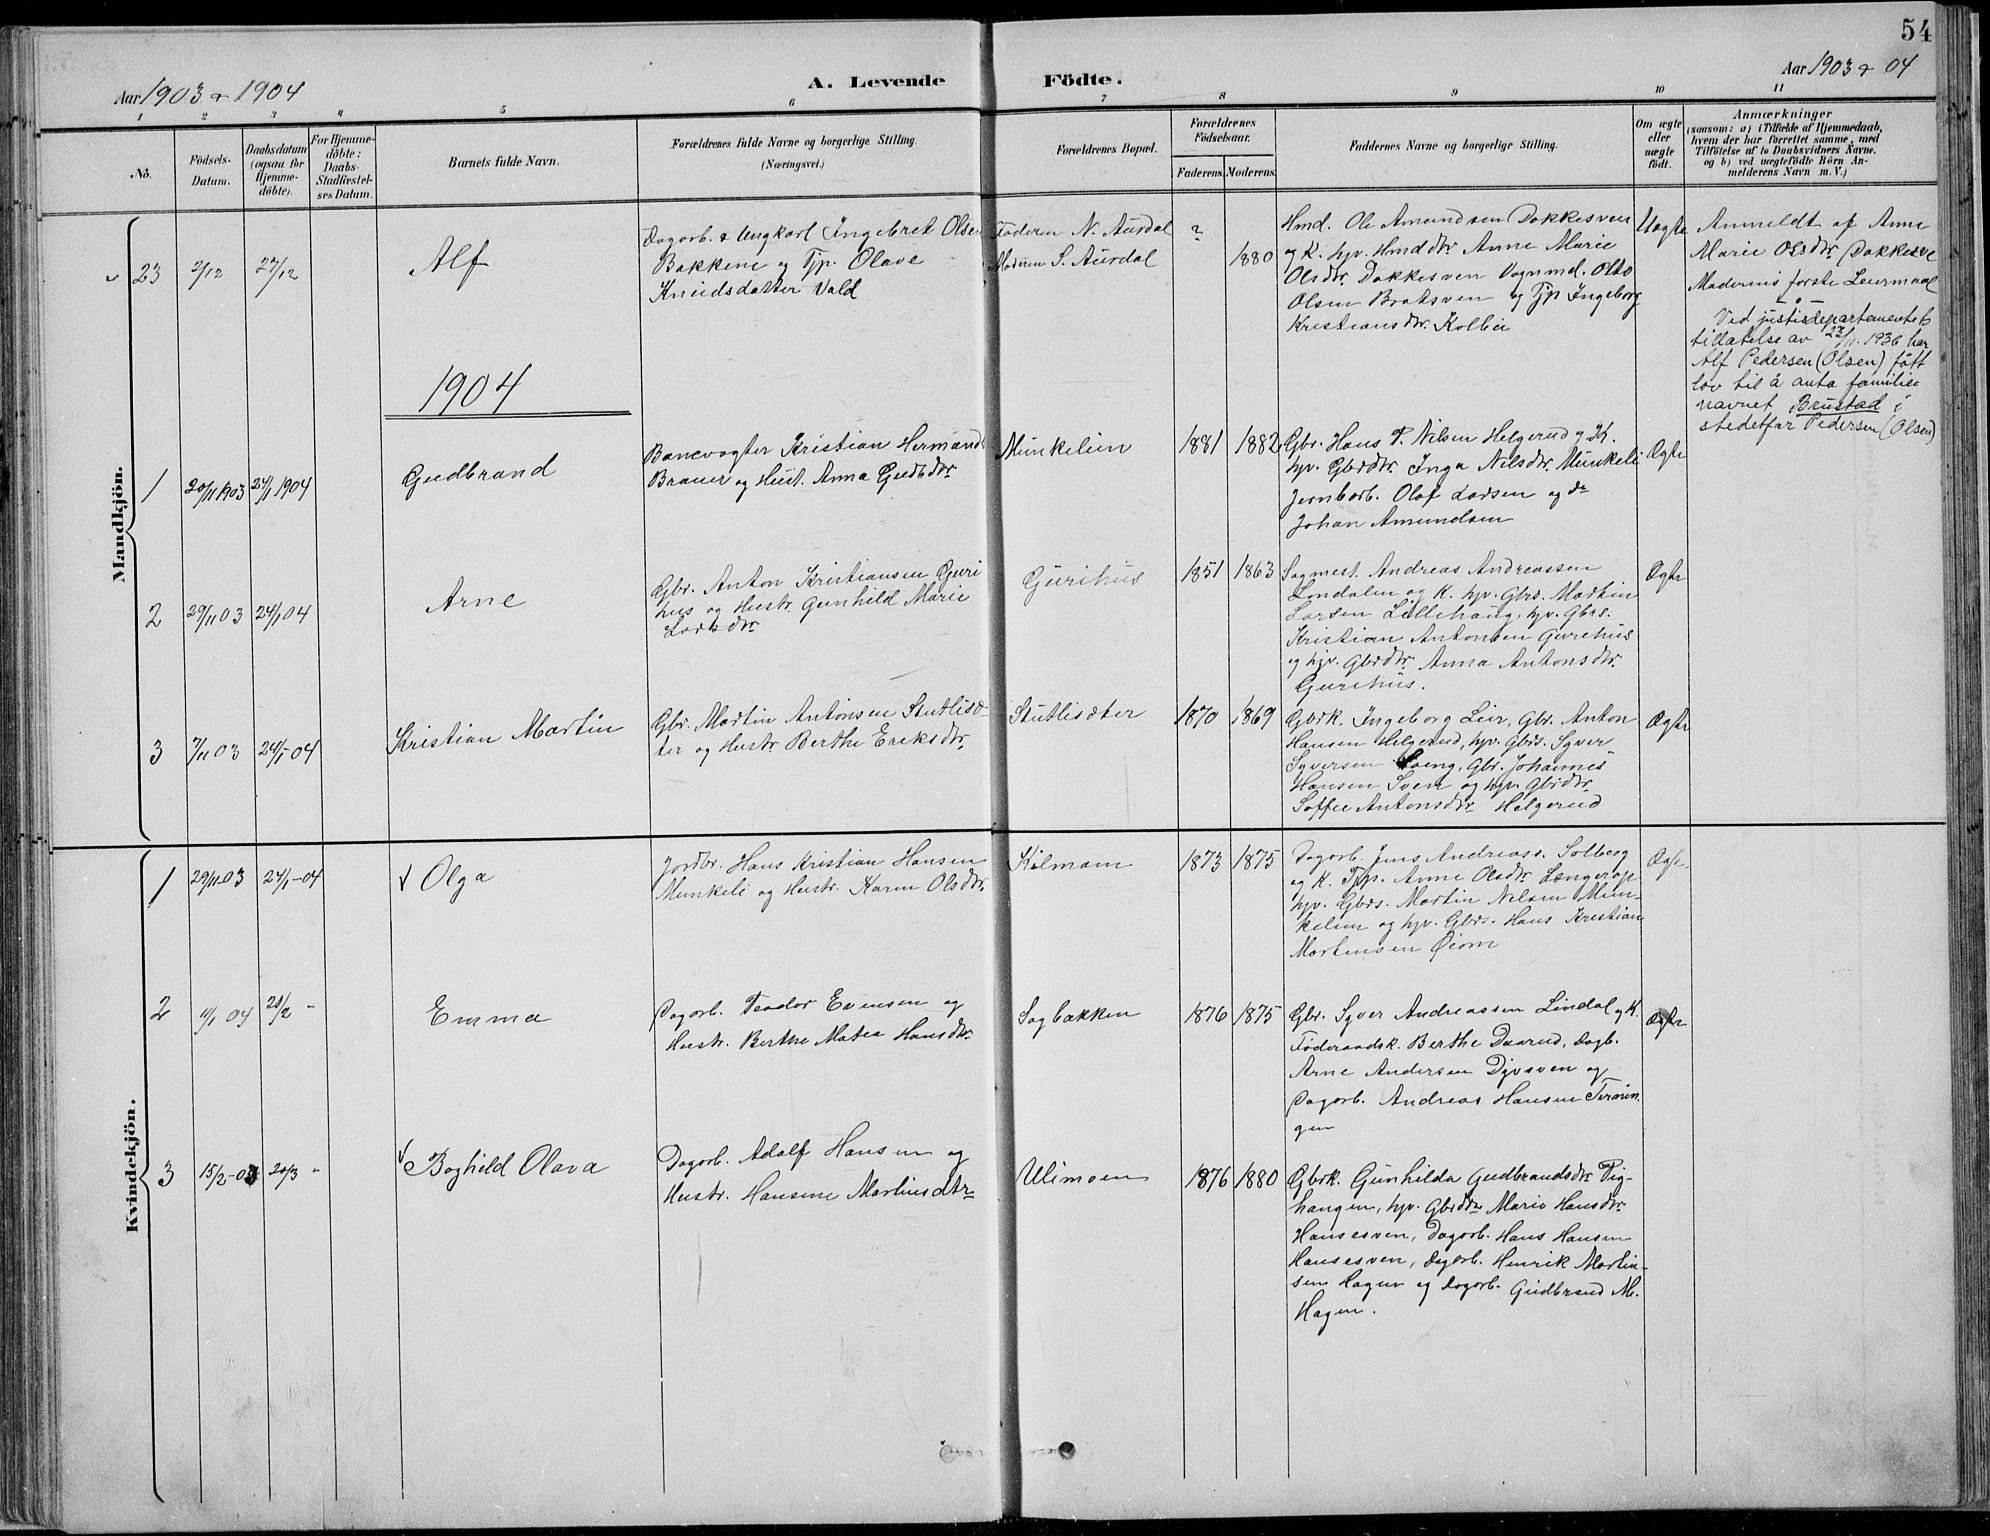 54
Aar 1903 & 1904
A. Levende Födte.
Aar 1903 & 04
1 2 3 4 5 6 7 8 9 10 11
No.
Födsels-
Datum.
Daabsdatum
(ogsaa for
Hjemme-
döbte).
For Hjemme-
döbte:
Daabs-
Stadfæstel-
ses Datum.
Barnets fulde Navn.
Forældrenes fulde Navne og borgerlige Stilling.
(Næringsvei.)
Forældrenes Bopæl.
Forældrenes
Födselsaar.
Faderens. Moderens.
Faddernes Navne og borgerlige Stilling.
Om ægte
eller
uægte
födt.
Anmærkninger
(saasom: a) i Tilfælde af Hjemmedaab,
hvem der har forrettet samme, med
Tilföielse af to Daabsvidners Navne.
og b) ved uægtefödte Börn An-
melderens Navn m. V.)
Mandkjön.
23
2/12
27/12
Alf
Dagarb. & Ungkarl Ingebret Olsen
Bakkene og Tjp. Olave
Knudsdatter Vold
Faderen N. Aurdal
Moderen S. Aurdal
?
1880
Hmd. Ole Amundsen Dokkesveen
og K. hjv. Hmddtr. Anne Marie
Olsdtr. Dokkesven Vognmd. Otto
Olsen Bratsven og Tjp Ingeborg
Kristiansdtr. Kolbu
Uægte
Anmeldt af Anne
Marie Olsdtr. Dokkesve
Moderens første Leiermaal
Ved justisdepartementets
tillatelse av 23/11 1936 har
Alf Pedersen (Olsen) fått
lov til å anta familie-
navnet Brustad i
stedetfor Pedersen (Olsen)
1904
1
20/11 1903
24/1 1904
Gudbrand
Banevogter Kristian Hermands
Brauer og Hust. Anna Gudbdtr.
Munkelien
1881
1882
Gbr. Hans P. Nilsen Helgerud og K.
hjv. Gbrdtr. Inga Nilsdtr. Munkeli
Jernbarb. Olaf Larsen og do
Johan Amundsen
Ægte
2
29/11 03
24/1 04
Arne
Gbr. Anton Kristiansen Guri
hus og Hustr. Gunhild Marie
Larsdtr.
Gurihus
1851
1863
Sagmest. Andreas Andreassen
Londalen og K. hjv. Gbrs. Martin
Larsen Lillehaug, hjv. Gbrs.
Kristian Antonsen Gurihus
og hjv. Gbrdtr. Anna Antonsdtr.
Gurihus.
Ægte
3
7/11 03
24/1-04
Kristian Martin
Gbr. Martin Antonsen Stutlisæ-
ter og Hustr. Berthe Eriksdtr.
Stutlisæter
1870
1869
Gbrk. Ingeborg Lier, Gbr. Anton
Hansen Helgerud, hjv. Gbrs. Syver
Syversen Eng, Gbr. Johannes
Hansen Sven og hjv. Gbrdtr.
Soffie Antonsdtr. Helgerud
Ægte
Kvindekjön.
1
29/11 03
24/1-04
Olga
Jordbr. Hans Kristian Hansen
Munkeli og Hustr. Karen Olsdtr.
Kölmoen
1873
1875
Dagarb. Jens Andreas. Solberg
og K. Tjp. Anne Olsdtr. Længerap
hjv. Gbrs. Martin Nilsen Mun-
kelien og hjv. Gbrs. Hans Kristian
Mortensen Öiom
Ægte
2
11/1 04
28/2 "
Emma
Dagarb. Teodor Evensen og
Hustr. Berthe Matea Hansdtr.
Sagbakken
1876
1875
Gbr. Syver Andreassen Lindal og K.
Föderaadsk. Berthe Daarud, Dagb.
Arne Andersen Djvsven og
Dagarb. Andreas Hansen Teröien
gen
Ægte
3
15/2-04
20/3 "
Boghild Olava
Dagarb. Adolf Hansen og
Hustr. Hansine Martinsdtr
Ulimoen
1876
1880
Gbrk. Gunhilda Gudbrandsdtr. Dig-
haugen, hjv. Gbrdtr. Marie Hansdtr.
Hansesven, Dagarb. Hans Hansen
Hansesven, Dagarb. Henrik Martin-
sen Hagen og Dagarb. Gudbrand M.
Hagen.